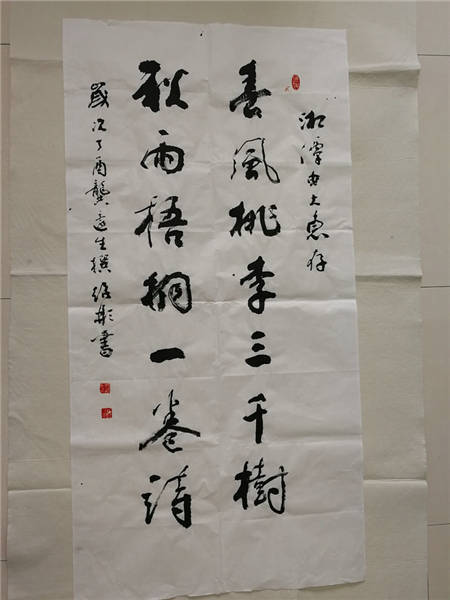 湘潭电大惠存
春风桃李三千樹
秋雨梧桐一卷詩
歲次丁酉龔遠生撰绍彬書